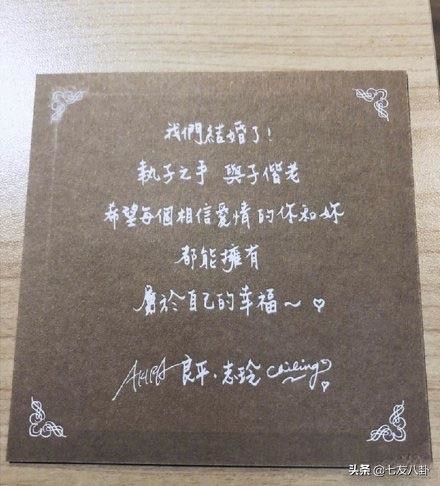 我們結婚了!
執子之手 與子偕老
希望每個相信愛情的你和妳
都能擁有
屬於自己的幸福~♡
AKIRA 良平.志玲 Chiling♡
头条 @七友八卦